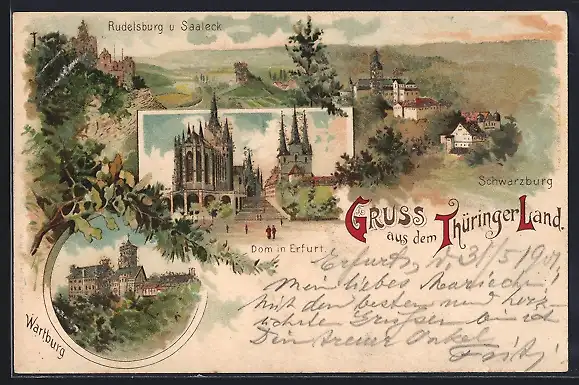 Rudelsburg u Saaleck
Schwarzburg
Gruss
aus dem Thüringer Land.
Dom in Erfurt.
Wartburg
Erfurt, d 31/5 1901.
Mein liebes Mariechen!
Mit den besten und herz-
lichste Grüßen bin ich
Dein treuer Onkel
Fritz!